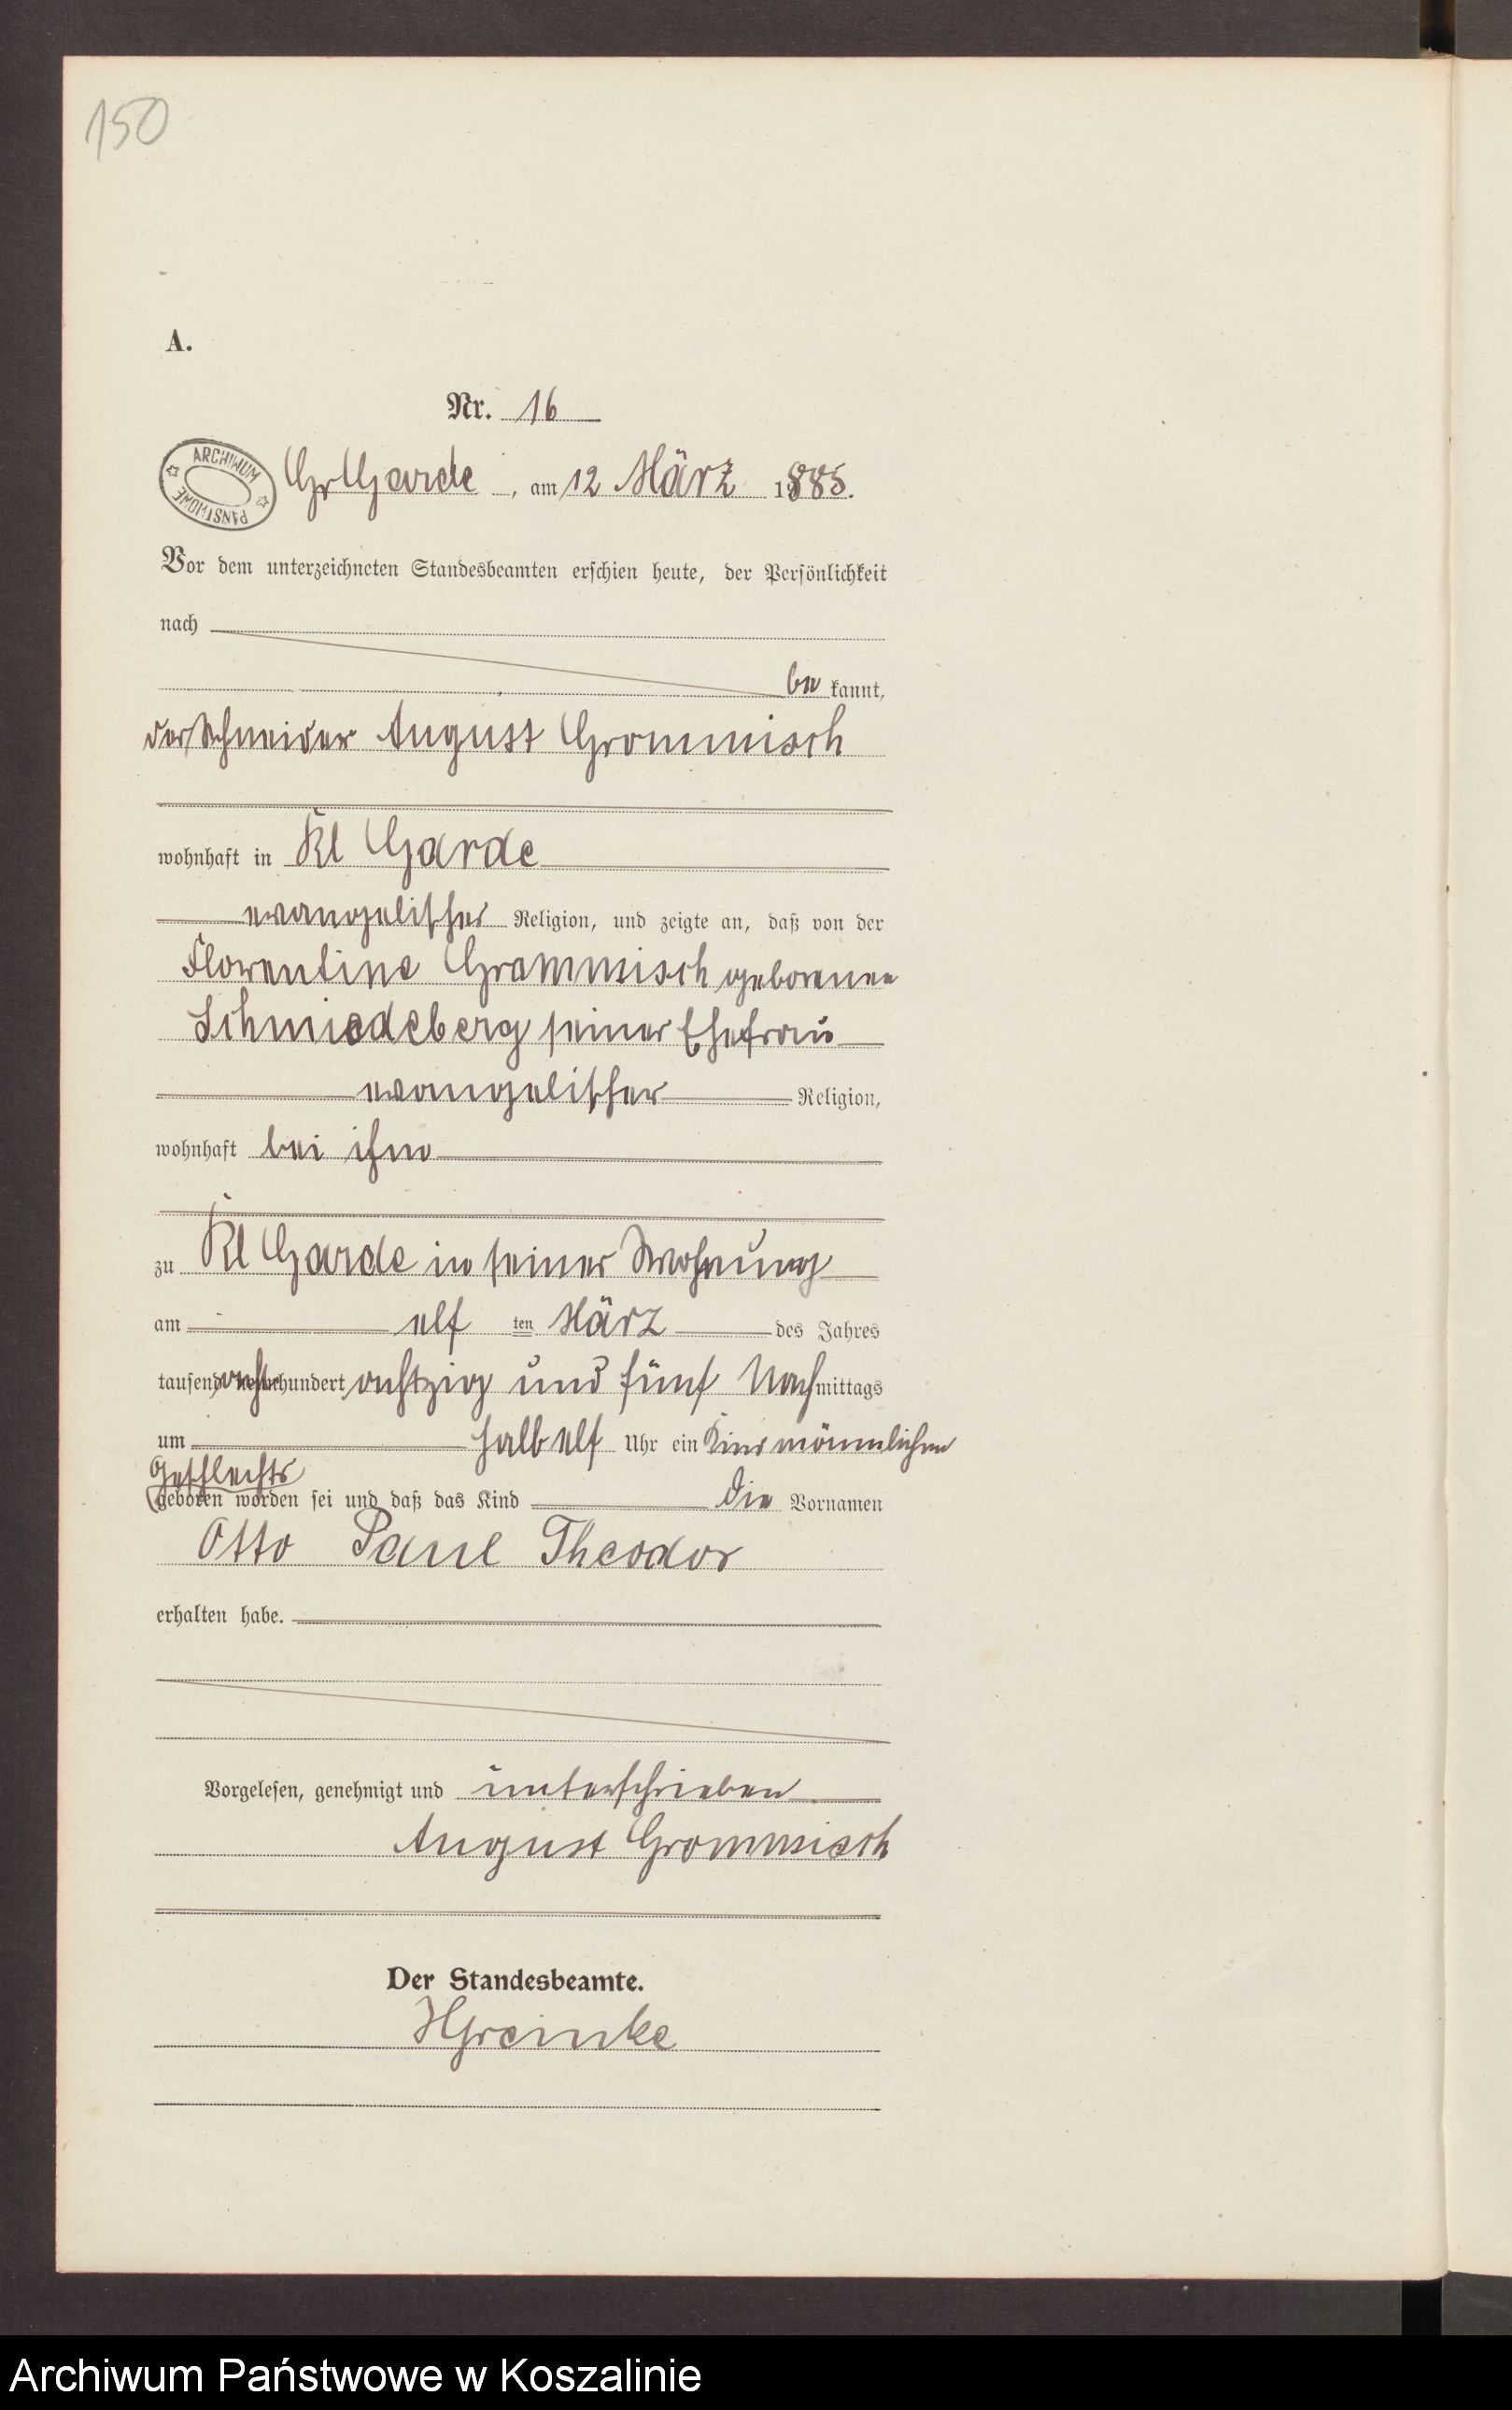 150
A.
Nr. 16
ARCHIWUM PAŃSTWOWE
Gr Garde, am 12 März 1885.
Vor dem unterzeichneten Standesbeamten erschien heute, der Persönlichkeit
nach
be kannt,
der Schneider August Grommisch
wohnhaft in Kl Garde
evangelischer Religion, und zeigte an, daß von der
Florentine Grammisch geborenen
Schmiedeberg seiner Ehefrau
evangelischer Religion,
wohnhaft bei ihm
zu Kl Garde in seiner Wohnung
am elf ten März des Jahres
tausend achthundert achtzig und fünf Nachmittags
um halb elf Uhr ein Kind männlichen
Geschlechts
geboren worden sei und daß das Kind die Vornamen
Otto Paul Theodor
erhalten habe.
Vorgelesen, genehmigt und unterschrieben
August Grommisch
Der Standesbeamte.
HGreinke
Archiwum Państwowe w Koszalinie